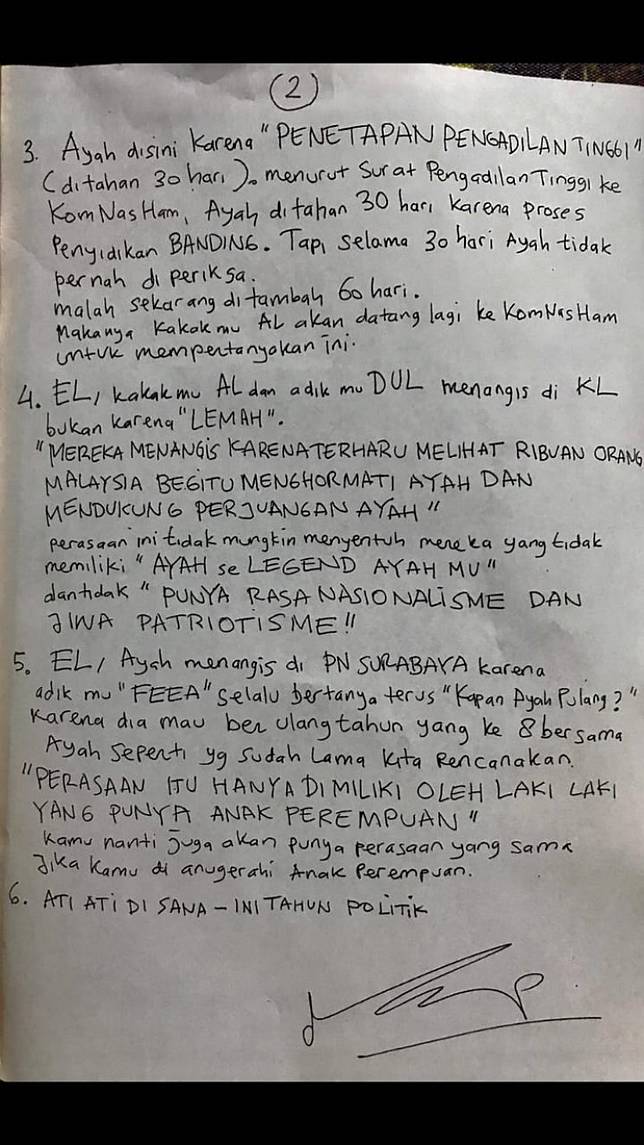 (2)
3. Ayah disini Karena "PENETAPAN PENGADILAN TINGGI"
(ditahan 30 hari). menurut Surat Pengadilan Tinggi ke
KomNasHam, Ayah ditahan 30 hari karena proses
Penyidikan BANDING. Tapi selama 30 hari Ayah tidak
pernah di periksa.
malah sekarang ditambah 60 hari.
Makanya Kakak mu AL akan datang lagi ke KomNasHam
untuk mempertanyakan ini.
4. EL, kakak mu AL dan adik mu DUL menangis di KL
bukan karena "LEMAH".
"MEREKA MENANGIS KARENA TERHARU MELIHAT RIBUAN ORANG
MALAYSIA BEGITU MENGHORMATI AYAH DAN
MENDUKUNG PERJUANGAN AYAH"
perasaan ini tidak mungkin menyentuh mereka yang tidak
memiliki "AYAH se LEGEND AYAH MU"
dan tidak "PUNYA RASA NASIONALISME DAN
JIWA PATRIOTISME!!
5. EL, Ayah menangis di PN SURABAYA karena
adik mu "FEEA" selalu bertanya terus "Kapan Ayah Pulang?"
Karena dia mau ber ulang tahun yang ke 8 bersama
Ayah Seperti yg sudah Lama Kita Rencanakan.
"PERASAAN ITU HANYA DI MILIKI OLEH LAKI LAKI
YANG PUNYA ANAK PEREMPUAN"
kamu nanti juga akan punya perasaan yang sama
Jika Kamu di anugerahi Anak Perempuan.
6. ATI ATI DI SANA - INI TAHUN POLITIK